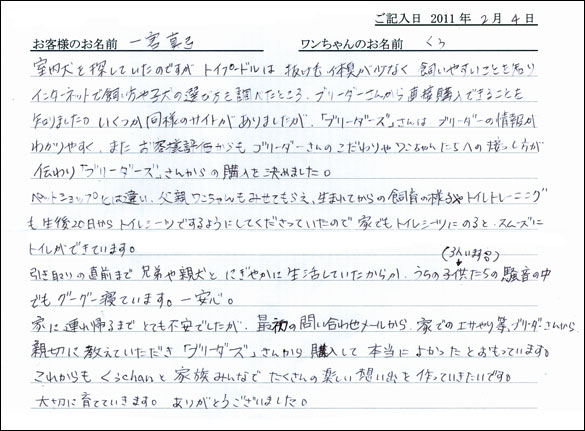 ご記入日 2011年 2月 4日
お客様のお名前 一宮 真弓 ワンちゃんのお名前 くぅ
室内犬を探していたのですが トイプードルは 抜け毛や体臭が少なく 飼いやすいことを知り
インターネットで飼い方や子犬の選び方を調べたところ、ブリーダーさんから直接購入できることを
知りました。いくつか同様のサイトがありましたが、「ブリーダーズ」さんは ブリーダーの情報が
わかりやすく、また お客様評価からも ブリーダーさんのこだわりやワンちゃんたちへの接し方が
伝わり「ブリーダーズ」さんからの購入を決めました。
ペットショップとは違い、父親ワンちゃんもみせてもらえ、生まれてからの飼育の様子やトイレトレーニング
も生後20日からトイレシーツでするようにしてくださっていたので 家でもトイレシーツにのると、スムーズに
トイレができています。
(3人います)
引き取りの直前まで 兄弟や親犬と にぎやかに 生活していたからか、うちの子供たちの騒音の中
でも グーグー寝ています。一安心。
家に連れ帰るまで とても不安でしたが、最初の問い合わせメールから、家でのエサやり等、ブリーダーさんから
親切に教えていただき「ブリーダーズ」さんから購入して 本当に よかったとおもっています。
これからも くぅchanと 家族みんなで たくさんの楽しい想い出を作っていきたいです。
大切に育てていきます。ありがとうございました。